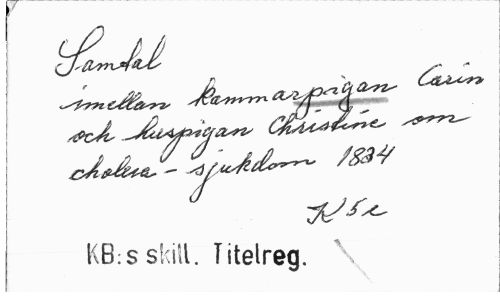 Samtal
imellan kammarpigan Carin
och huspigan Christine om
cholera-sjukdom 1834
K 5 c
KB:s skill. Titelreg.